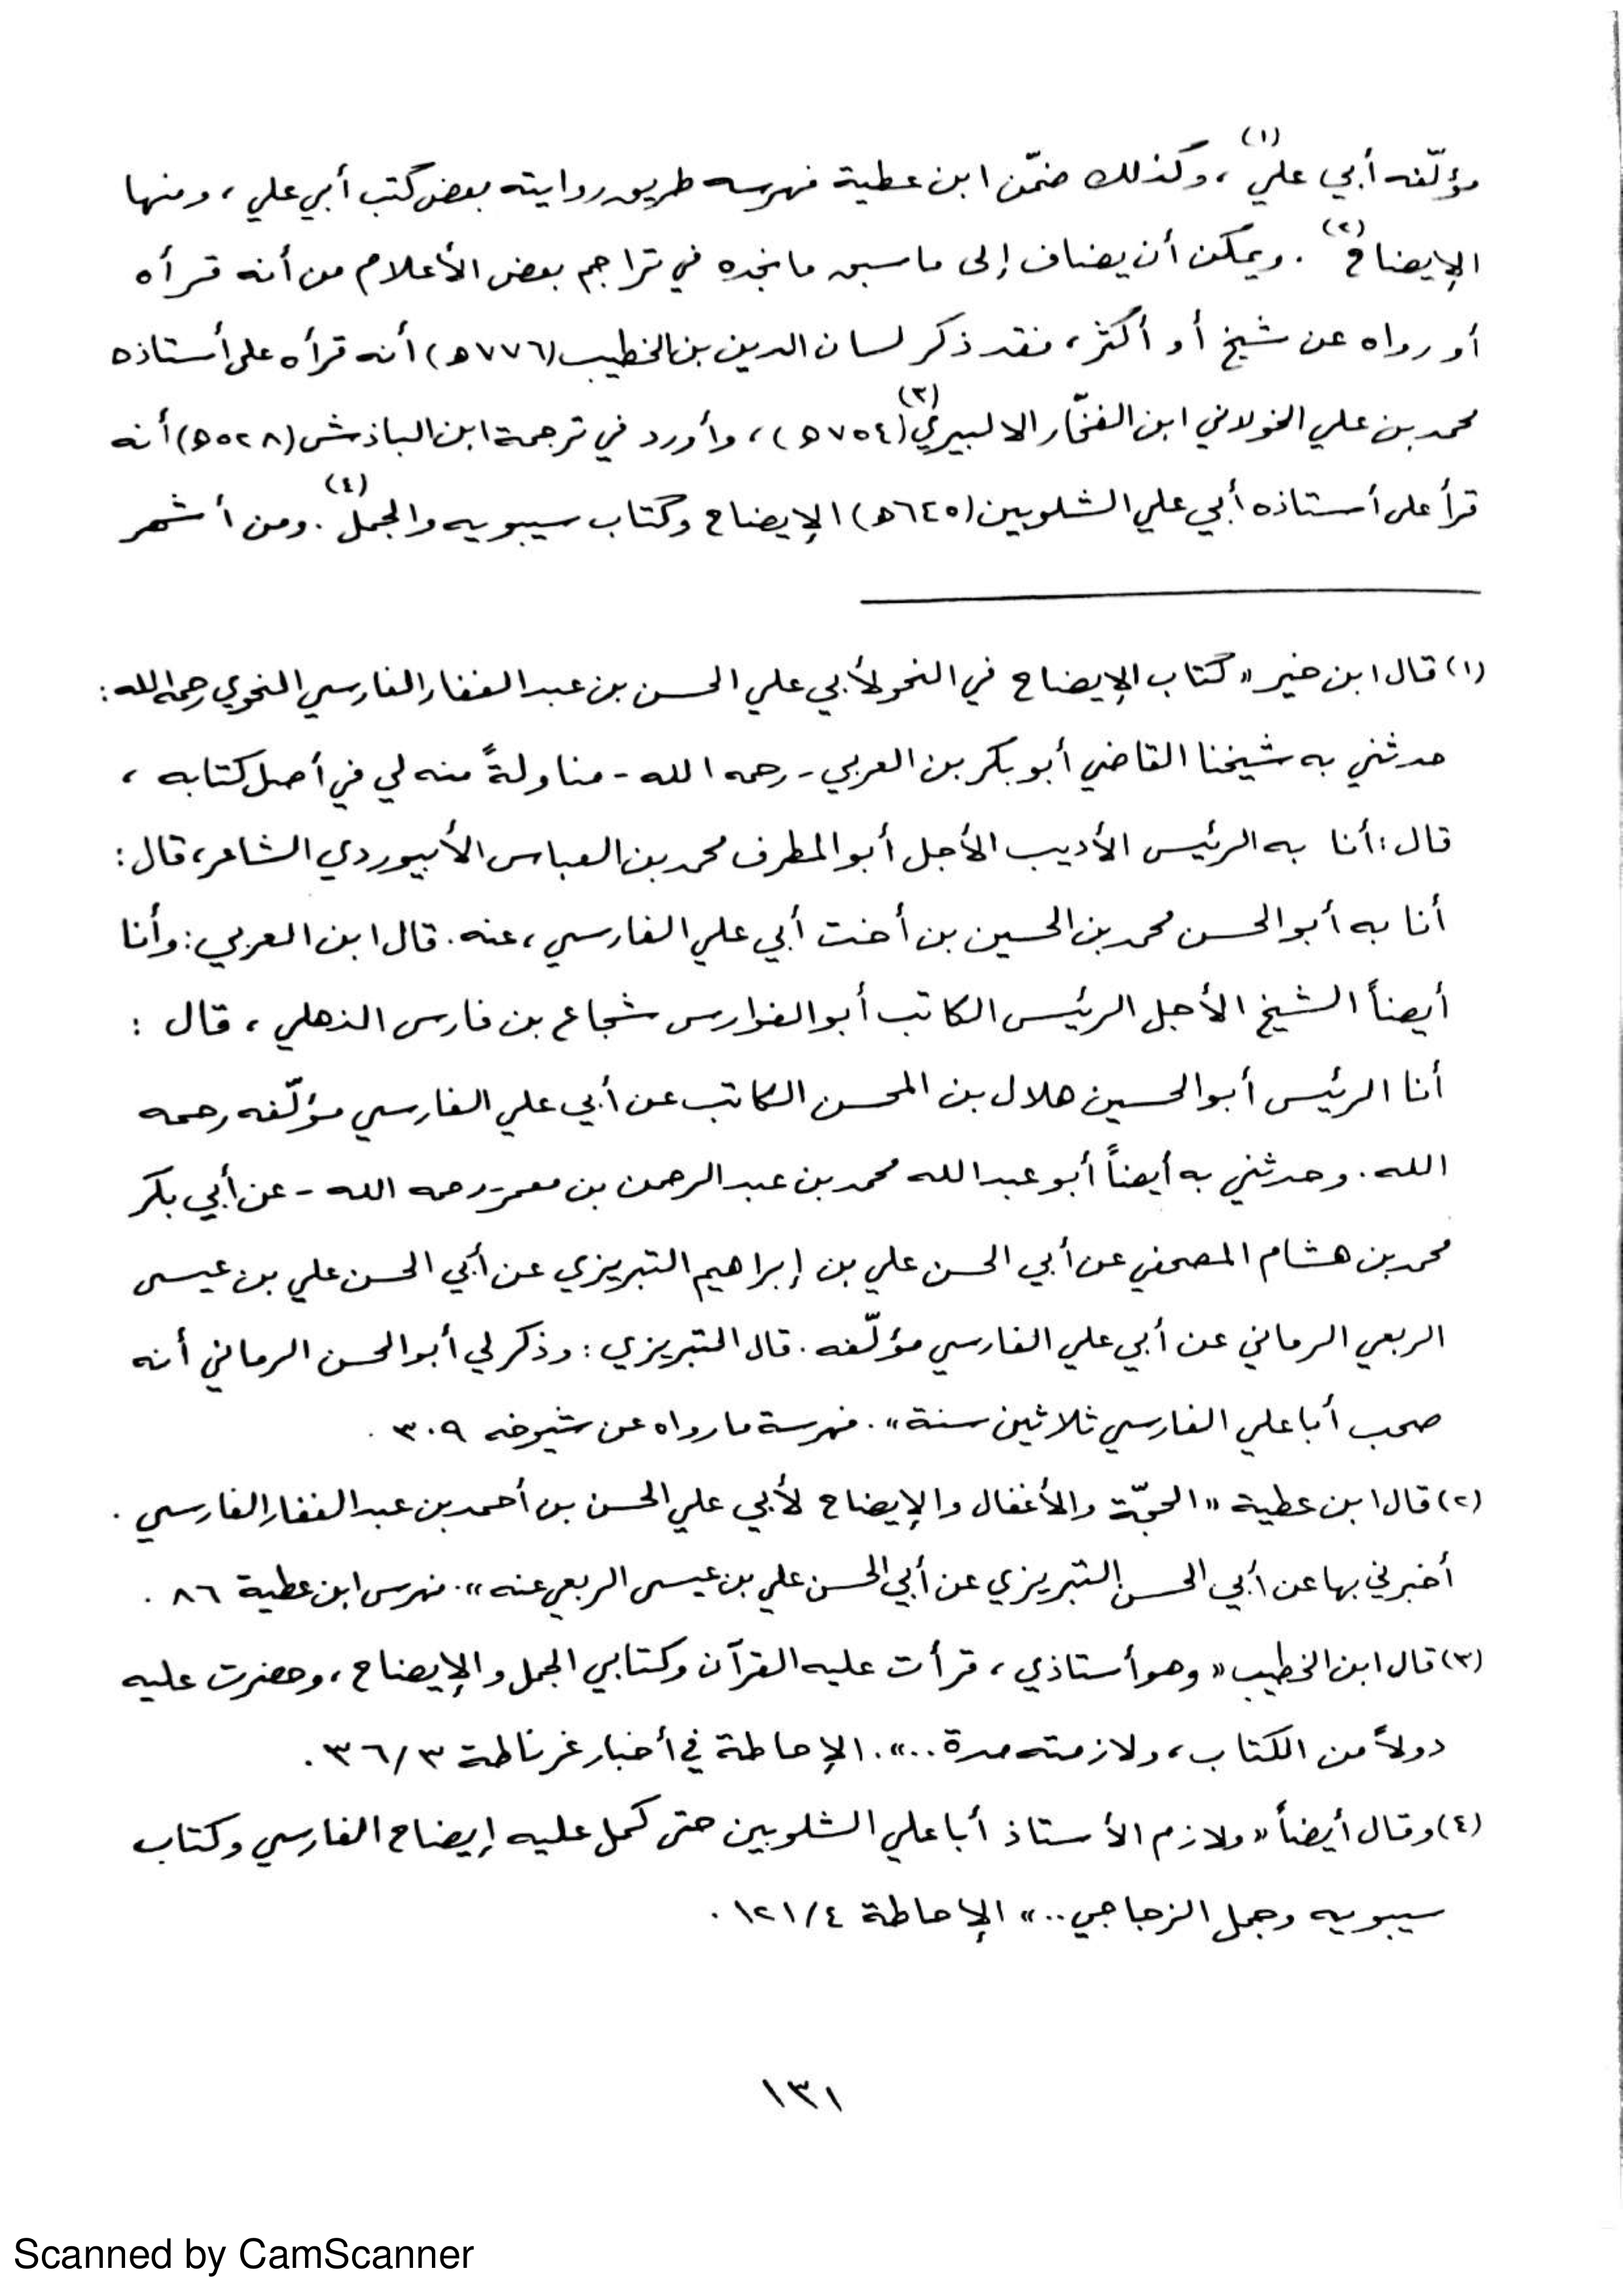 مؤلّفه أبي علي(١)، وكذلك ضمّن ابن عطية فهرسه طريق روايته بعض كتب أبي علي، ومنها
الإيضاح(٢). ويمكن أن يضاف إلى ما سبق ما نجده في تراجم بعض الأعلام من أنه قرأه
أو رواه عن شيخ أو أكثر، فقد ذكر لسان الدين بن الخطيب (٧٧٦ه) أنه قرأه على أستاذه
محمد بن علي الخولاني ابن الفخّار الالبيري(٣) (٧٥٤ه)، وأورد في ترجمة ابن الباذش (٥٢٨ه) أنه
قرأ على أستاذه أبي علي الشلوبين (٦٤٥ه) الإيضاح وكتاب سيبويه والجمل(٤). ومن أشهر
(١) قال ابن خير «كتاب الإيضاح في النحو لأبي علي الحسن بن عبد الغفار الفارسي النحوي رحمه الله:
حدثني به شيخنا القاضي أبو بكر بن العربي - رحمه الله - مناولةً منه لي في أصل كتابه،
قال: أنا به الرئيس الأديب الأجل أبو المطرف محمد بن العباس الأبيوردي الشاعر، قال:
أنا به أبو الحسن محمد بن الحسين بن أخت أبي علي الفارسي، عنه. قال ابن العربي: وأنا
أيضاً الشيخ الأجل الرئيس الكاتب أبو الفوارس شجاع بن فارس الذهلي، قال :
أنا الرئيس أبو الحسين هلال بن المحسن الكاتب عن أبي علي الفارسي مؤلّفه رحمه
الله. وحدثني به أيضاً أبو عبد الله محمد بن عبد الرحمن بن معمر - رحمه الله - عن أبي بكر
محمد بن هشام المصحفي عن أبي الحسن علي بن إبراهيم التبريزي عن أبي الحسن علي بن عيسى
الربعي الرماني عن أبي علي الفارسي مؤلّفه. قال التبريزي: وذكر لي أبو الحسن الرماني أنه
صحب أبا علي الفارسي ثلاثين سنة». فهرسة ما رواه عن شيوخه ٣٠٩ .
(٢) قال ابن عطية «الحجّة والأغفال والإيضاح لأبي علي الحسن بن أحمد بن عبد الغفار الفارسي .
أخبرني بها عن أبي الحسن التبريزي عن أبي الحسن علي بن عيسى الربعي عنه». فهرس ابن عطية ٨٦ .
(٣) قال ابن الخطيب «وهو أستاذي، قرأت عليه القرآن وكتابي الجمل والإيضاح، وحضرت عليه
دولاً من الكتاب، ولازمته مدة ..». الإحاطة في أخبار غرناطة ٣/٣٦ .
(٤) وقال أيضاً «ولازم الأستاذ أبا علي الشلوبين حتى كمل عليه إيضاح الفارسي وكتاب
سيبويه وجمل الزجاجي ..» الإحاطة ٤/١٢١ .
١٣١
Scanned by CamScanner